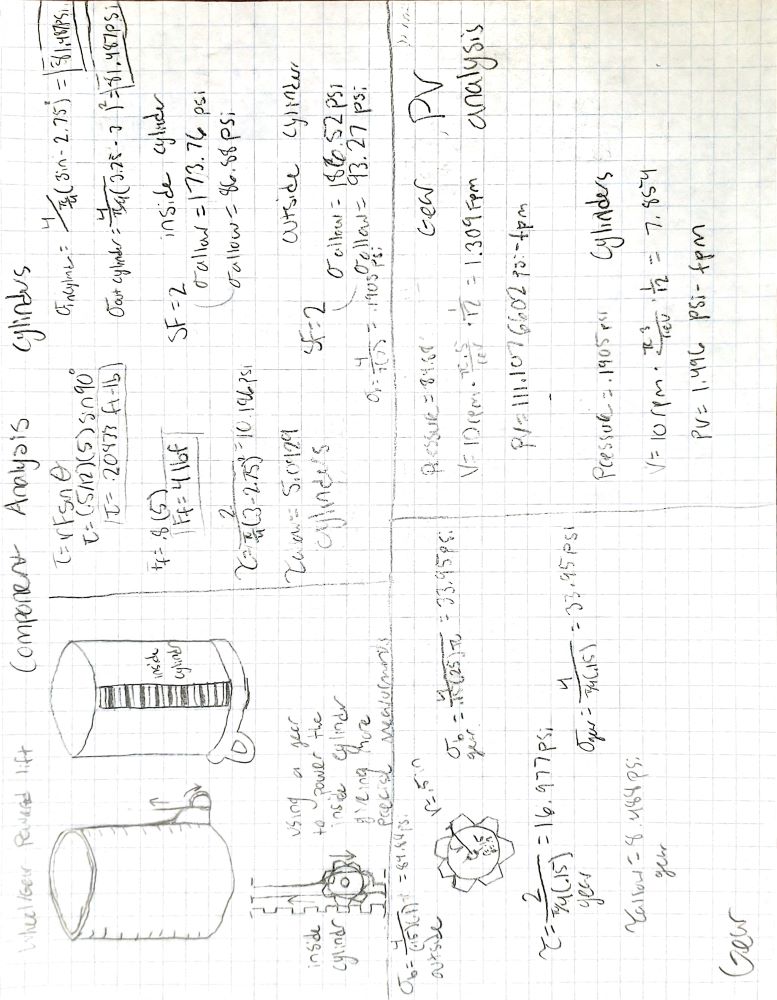 Component Analysis
cylinders
Wheel/Gear Powered lift
inside
cylinder
inside
cylindr
using a gear
to power the
inside cylinder
giving more
precise measurments
τ = rFsin θ
τ = (.5/12)(5) sin 90°
τ = .20833 ft-lb
Ff = .8(5)
Ff = 4 lbf
τ = 2 / π/4(3-2.75)² = 10.186 psi
τallow = 5.0929
cylinders
σincylinder = 4 / π/4(3in - 2.75)² = 81.487psi
σout cylinder = 4 / π/4(3.25 - 3)² = 81.487psi
SF = 2 inside cylinder
σallow = 173.76 psi
σallow = 86.88 psi
outside cylinder
SF = 2
σallow = 186.52 psi
σallow = 93.27 psi
4 / π(7) = .1905 psi
σb = 4 / (.15)(.1)π = 84.88 psi
outside
r = .5in
σb gear = 4 / .15(.25)π = 33.95 psi
τ = 2 / π/4(.15) = 16.977psi
gear
σgear = 4 / π/4(.15) = 33.95 psi
τallow = 8.488 psi
gear
Gear
Gear PV
analysis
Pressure = 84.88
V = 10 rpm · π.5/rev · 1/12 = 1.309 Fpm
PV = 111.1076602 psi-fpm
Cylinders
Pressure = .1905 psi
V = 10 rpm · π3/rev · 1/12 = 7.854
PV = 1.496 psi-fpm